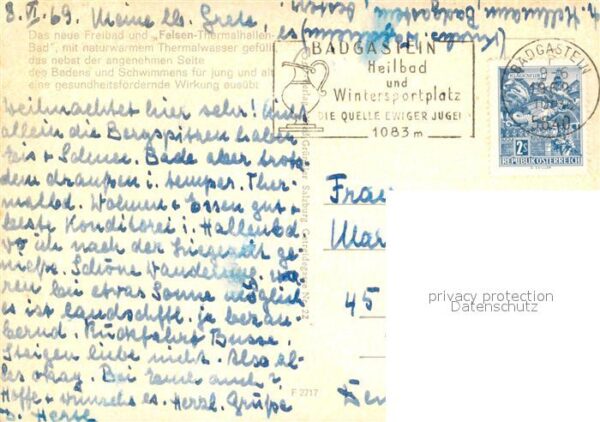 8. VI. 69. Meine lb. Grete, es
Das neue Freibad und „Felsen-Thermalhallen-
Bad", mit naturwarmem Thermalwasser gefüllt
das nebst der angenehmen Seite
des Badens und Schwimmens für jung und alt
eine gesundheitsfördernde Wirkung ausübt
weihnachtet hier sehr! Nicht
allein die Bergspitzen haben
Eis + Schnee. Bade aber trotz
dem draußen i. temper. Ther-
malbad. Wohnen + Essen gut +
beste Konditorei i. Hallenbd
wo ich nach der Liegezeit ge-
nieße. Schöne Wanderung. wä-
ren bei etwas Sonne möglich
es ist landschftl. ja bezau-
bernd. Rückfahrt Busse,
Steigen liebe nicht. Also al-
les okay. Bei Euch auch?
Hoffe + wünsche es. Herzl. Grüße
Hellmann, Badgastein,
BADGASTEIN
Heilbad
und
Wintersportplatz
DIE QUELLE EWIGER JUGEND
1083 m
BADGASTEIN
2S
REPUBLIK ÖSTERREICH
Salzburg
F 2717
Frau
Mar
45
privacy protection
Datenschutz